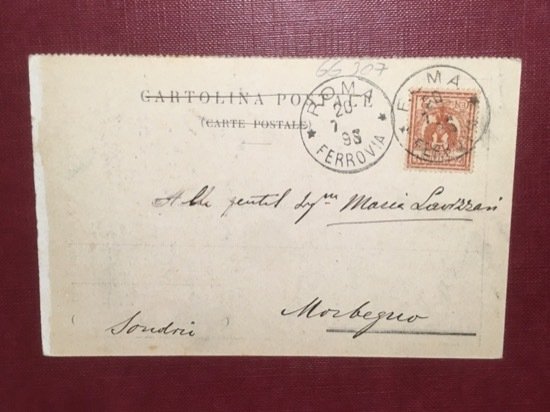 GG 307
CARTOLINA POSTALE
(CARTE POSTALE)
ROMA
20
7
FERROVIA
ROMA
20
7
Alla gentil Sigra Maria Lavizzari
Morbegno
(Sondrio